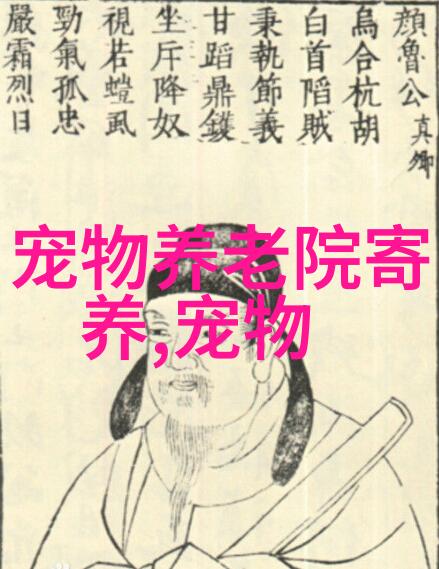 顔魯公真卿
烏合杭胡
白首陷賊
秉執節義
甘蹈鼎鑊
坐斥降奴
視若螘虱
勁氣孤忠
嚴霜烈日
宠物养老院寄
养,宠物